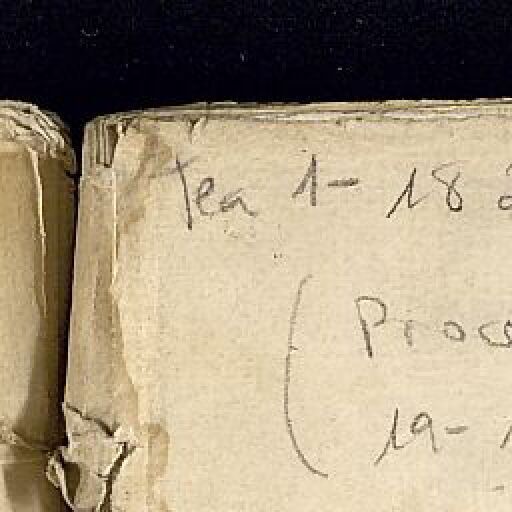 Tea 1- 18
( Proc
19-